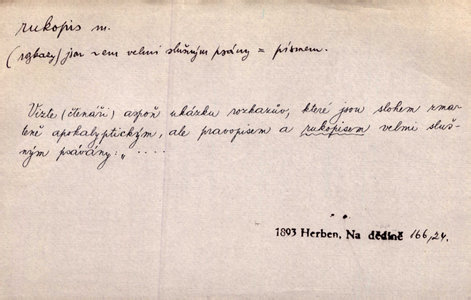 rukopis m.
(rozkazy) jsou ~em velmi slušným psány = písmem.
Vizte (čtenáři) aspoň ukázku rozkazův, které jsou slohem zma-
teně apokalyptickým, ale pravopisem a rukopisem velmi sluš-
ným psávány: „ ....
1893 Herben, Na dědině 166,24.